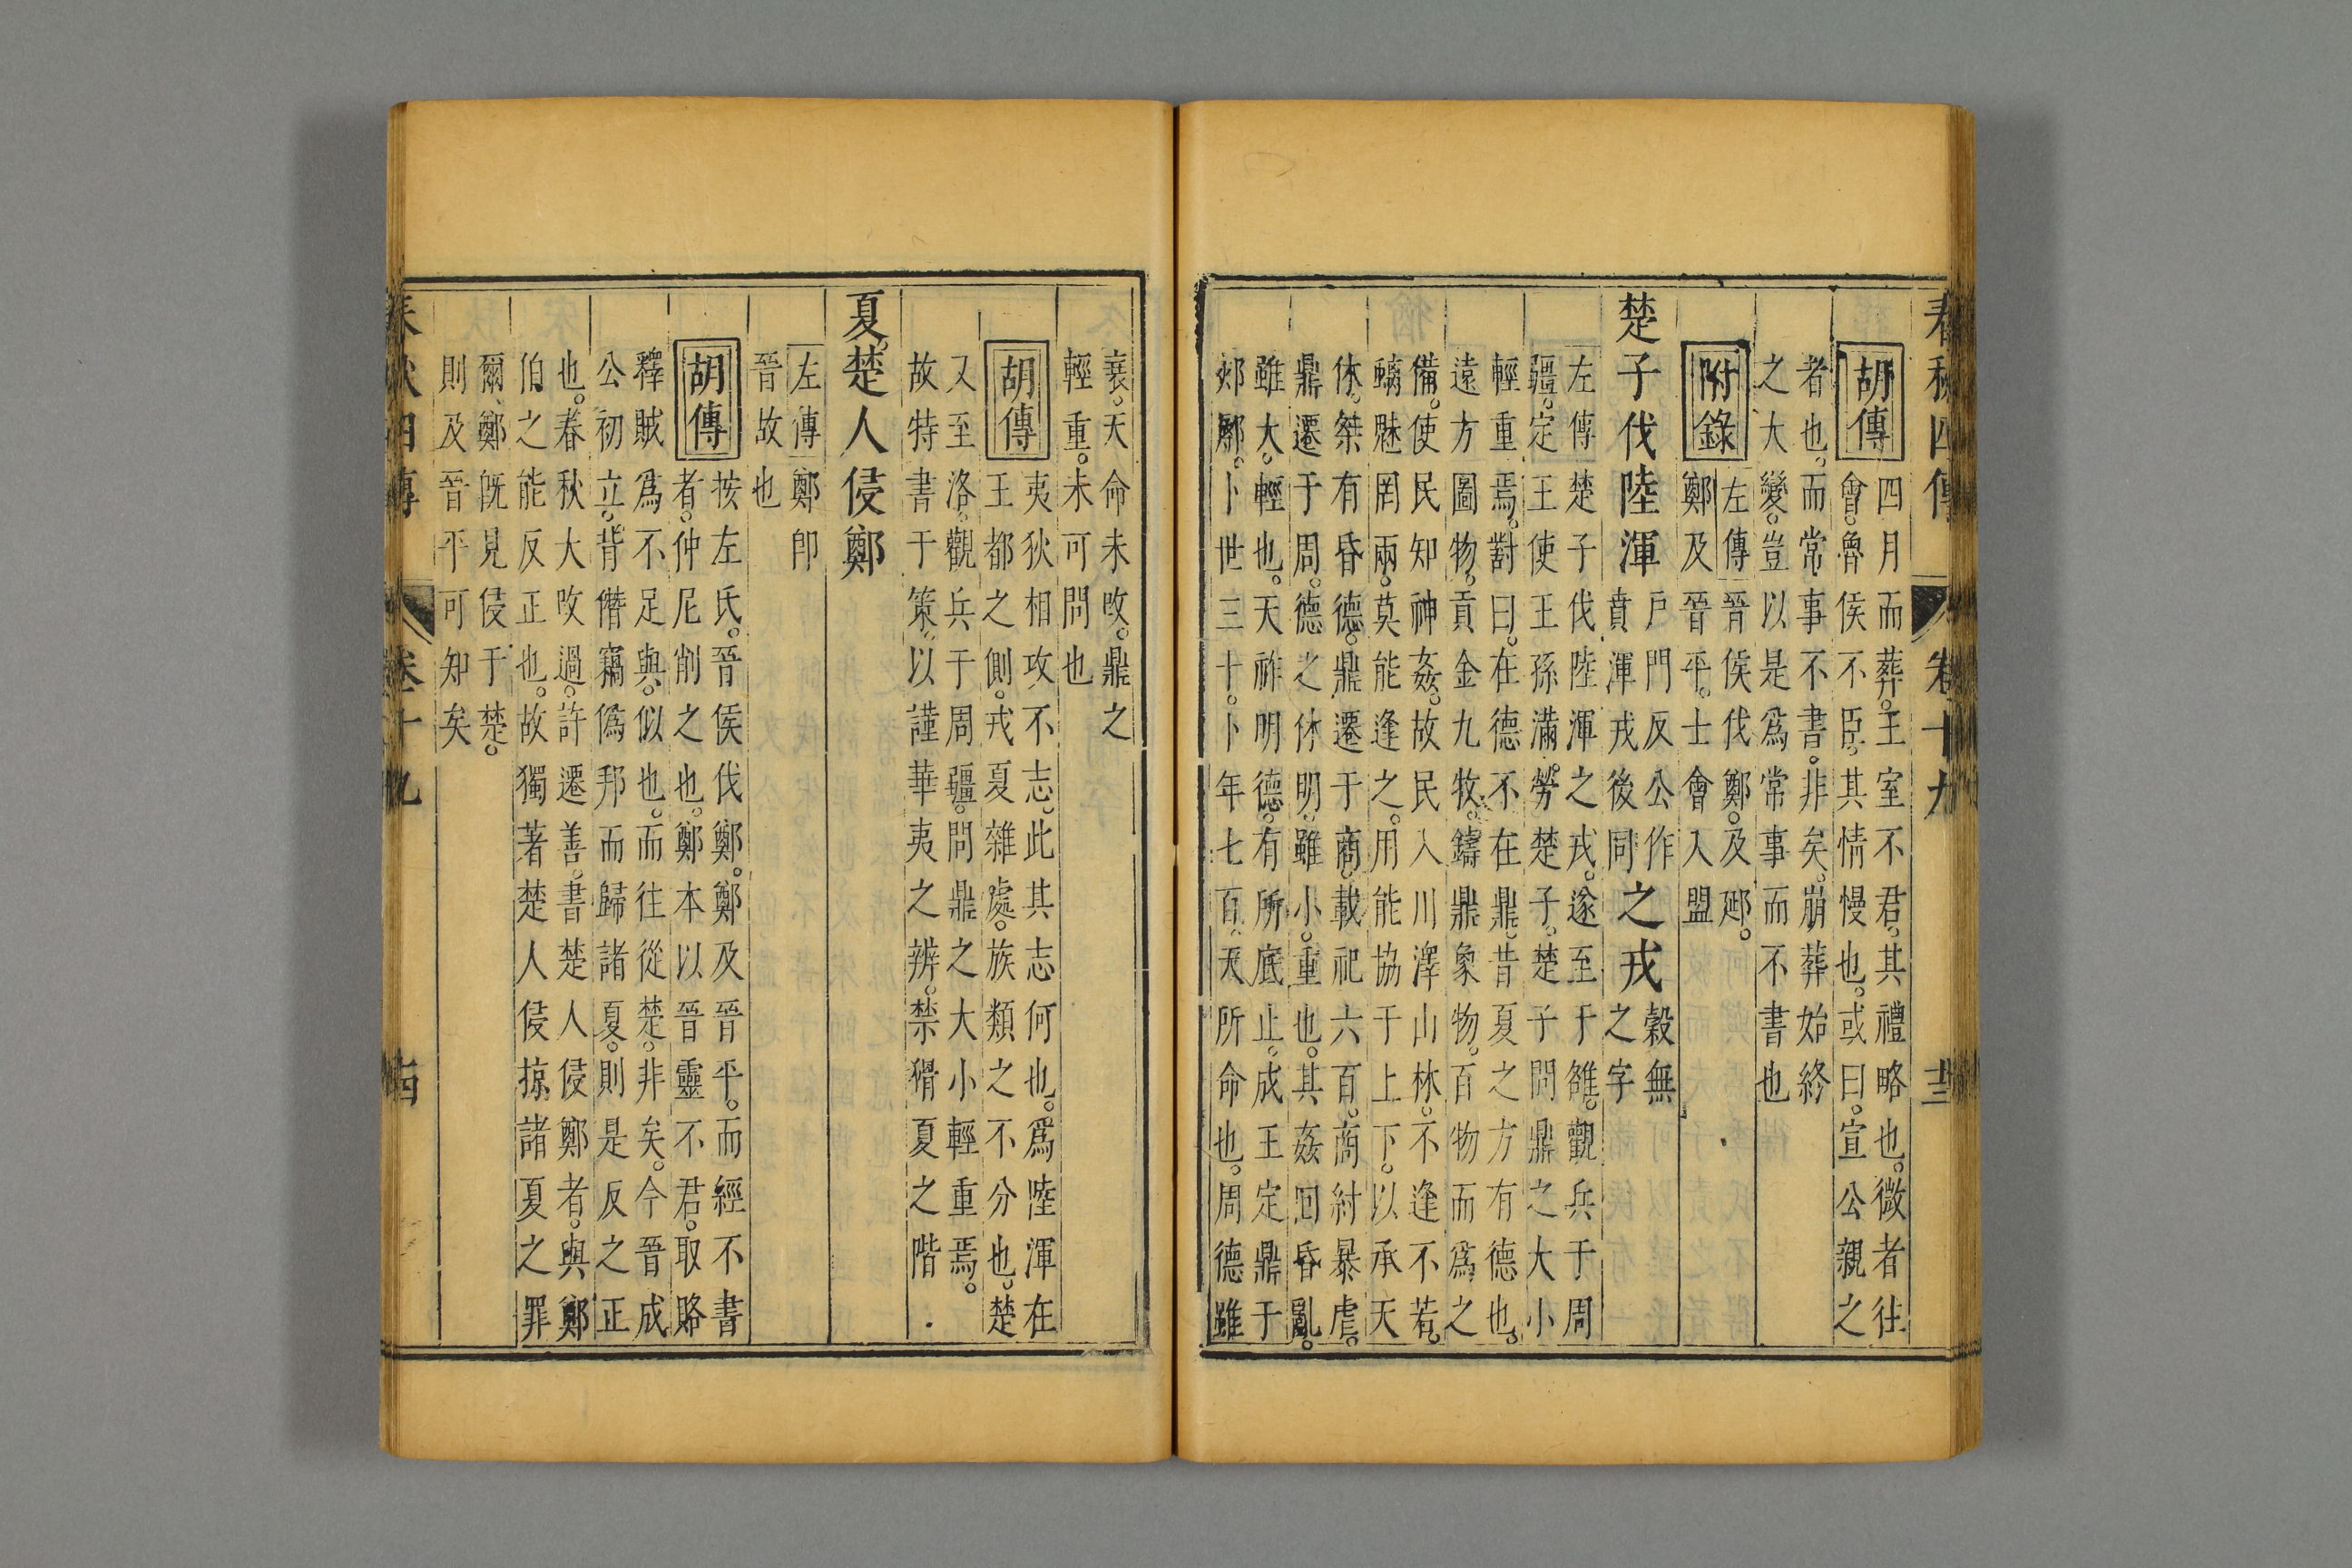 春秋四傳 卷十九 十三
胡傳 四月而葬。王室不君。其禮略也。微者往
會。魯侯不臣。其情慢也。或曰。宣公親之
者也。而常事不書。非矣。崩葬始終
之大變。豈以是爲常事而不書也
附錄 左傳 晉侯伐鄭。及郔。
鄭及晉平。士會入盟
楚子伐陸渾之戎
戶門反公作
賁渾戎後同
穀無
之字
左傳 楚子伐陸渾之戎。遂至于雒。觀兵于周
疆。定王使王孫滿勞楚子。楚子問鼎之大小
輕重焉。對曰。在德不在鼎。昔夏之方有德也。
遠方圖物。貢金九牧。鑄鼎象物。百物而爲之
備。使民知神姦。故民入川澤山林。不逢不若。
螭魅罔兩。莫能逢之。用能協于上下。以承天
休。桀有昏德。鼎遷于商。載祀六百。商紂暴虐。
鼎遷于周。德之休明。雖小。重也。其姦回昏亂。
雖大。輕也。天祚明德。有所底止。成王定鼎于
郟鄏。卜世三十。卜年七百。天所命也。周德雖
衰。天命未改。鼎之
輕重。未可問也
胡傳 夷狄相攻不志。此其志何也。爲陸渾在
王都之側。戎夏雜處。族類之不分也。楚
又至洛。觀兵于周疆。問鼎之大小輕重焉。
故特書于策。以謹華夷之辨。禁猾夏之階
夏。楚人侵鄭
左傳 鄭卽
晉故也
胡傳 按左氏。晉侯伐鄭。鄭及晉平。而經不書
者。仲尼削之也。鄭本以晉靈不君。取賂
釋賊爲不足與。似也。而往從楚。非矣。今晉成
公初立。背僭竊僞邦而歸諸夏。則是反之正
也。春秋大改過。許遷善。書楚人侵鄭者。與鄭
伯之能反正也。故獨著楚人侵掠諸夏之罪
爾。鄭旣見侵于楚。
則及晉平可知矣
春秋四傳 卷十九 十四